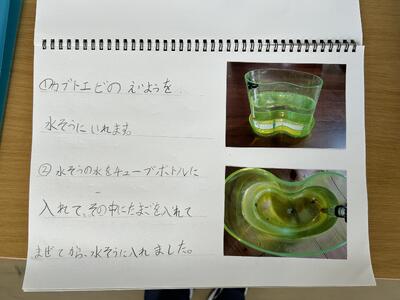 ①カブトエビの えいようを
水そうにいれます。
②水そうの水をチューブボトルに
入れて、その中にたまごを入れて
まぜてから、水そうに入れました。